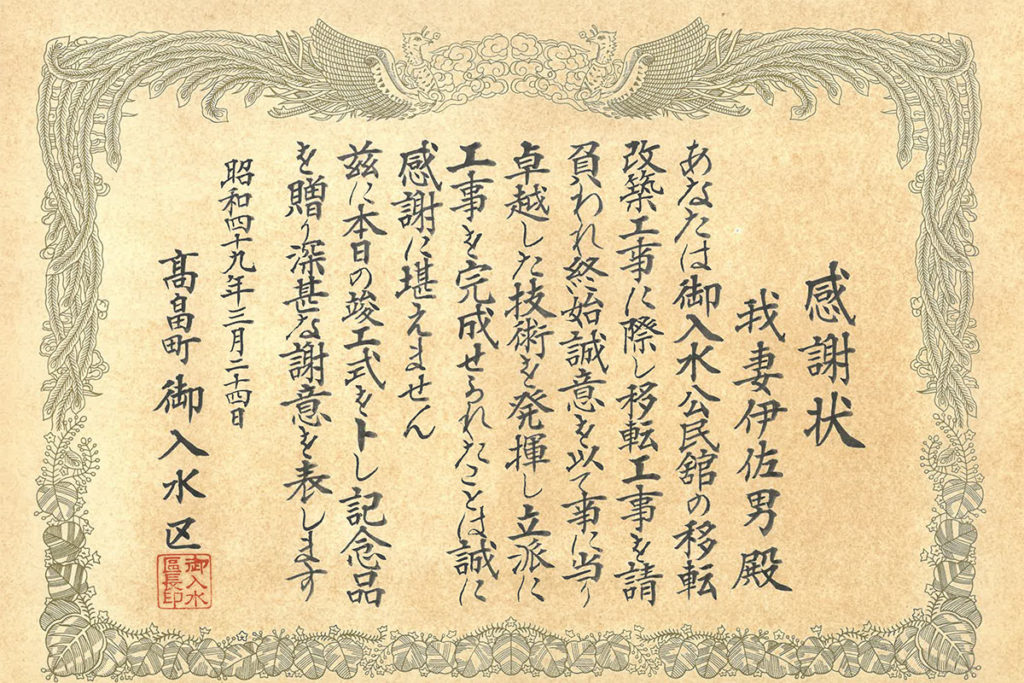 感謝状
我妻伊佐男殿
あなたは御入水公民舘の移転
改築工事に際し移転工事を請
負われ終始誠意を以て事に当り
卓越した技術を発揮し立派に
工事を完成せられたことは誠に
感謝に堪えません
茲に本日の竣工式をトし記念品
を贈り深甚な謝意を表します
昭和四十九年三月二十四日
高畠町御入水区
御入水
區長印